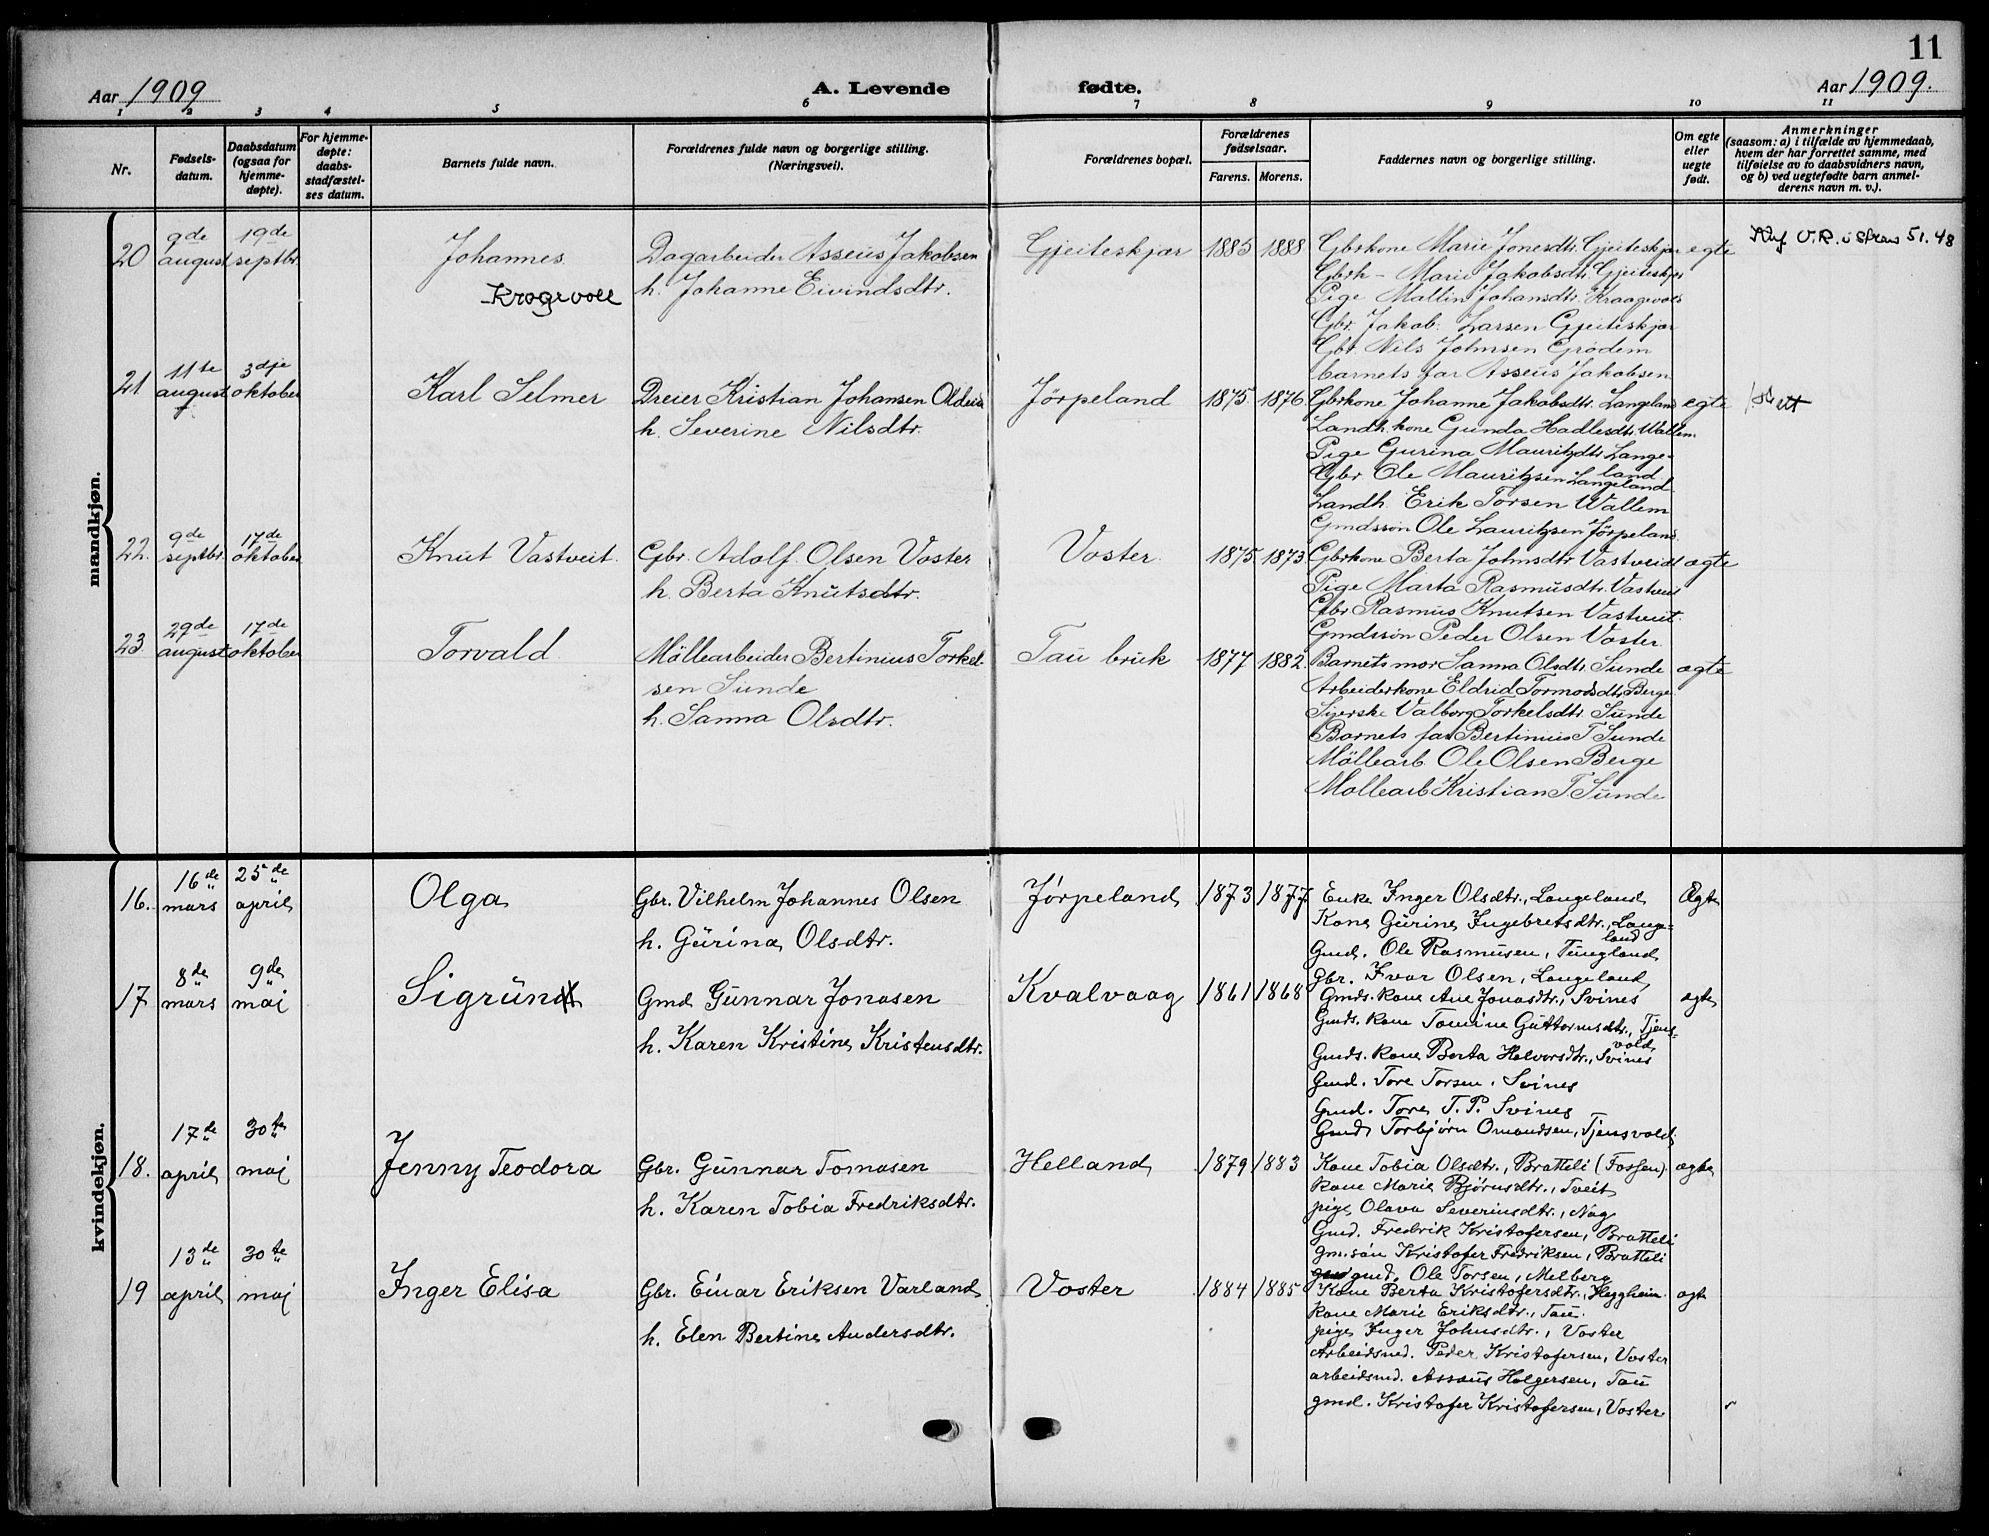 11
Aar 1909
A. Levende
fødte.
Aar 1909.
1 2 3 4 5 6 7 8 9 10 11
Nr.
Fødsels-
datum.
Daabsdatum
(ogsaa for
hjemme-
døpte).
For hjemme-
døpte:
daabs-
stadfæstel-
ses datum.
Barnets fulde navn.
Forældrenes fulde navn og borgerlige stilling.
(Næringsvei).
Forældrenes bopæl.
Forældrenes
fødselsaar.
Farens. Morens.
Faddernes navn og borgerlige stilling.
Om egte
eller
uegte
født.
Anmerkninger
(saasom: a) i tilfælde av hjemmedaab,
hvem der har forrettet samme, med
tilføielse av to daabsvidners navn,
og b) ved uegtefødte barn anmel-
derens navn m. v.).
mandkjøn.
20 9de august 19de septbr.
Johannes
Krogevoll
Dagarbeider Asseus Jakobsen
h. Johanne Eivindsdtr.
Gjeiteskjær 1885 1888
Gbrkone Marie Jonesdtr. Gjeiteskjær
Gbrk – Marie Jakobsdtr. Gjeiteskjær
Pige Mallin Johansdtr. Kraagevoll
Gbr. Jakob Larsen Gjeiteskjær
Gbr. Nils Johnsen Grødem
barnets far Asseus Jakobsen
egte
51. 48
21 11te august 3dje oktober
Karl Selmer
Dreier Kristian Johansen
h. Severine Nilsdtr.
Jörpeland 1875. 1876.
Gbrkone Johanne Jakobsdtr. Langeland
Landh. kone Gunda Hadlesdtr. Wallem
Pige Gurina Mauritzdtr. Lange-
land
Gbr Ole Mauritzsen Langeland
Landh. Erik Torsen Wallem
Gmdssøn Ole Lauritzsen Jørpeland
egte
22. 9de septbr. 17de oktober
Knut Vastveit.
Gbr. Adolf Olsen Voster
h. Berta Knutsdtr.
Voster. 1875. 1873.
Gbrkone Berta Johnsdtr. Vastveidt
Pige Marta Rasmusdtr. Vastveit
Gbr Rasmus Knutsen Vastveit.
Gmdssøn Peder Olsen Voster.
egte
23. 29de august 17de oktober
Torvald
Möllearbeider Bertinius Torkel-
sen Sunde
h. Sanna Olsdtr.
Tau bruk 1877 1882.
Barnets mor Sanna Olsdtr. Sunde
Arbeiderkone Eldrid Tormodsdtr. Berge
Sjerske Valborg Torkelsdtr. Sunde
Barnets far Bertinius T Sunde
Möllearb Ole Olsen Berge
Möllearb Kristian T Sunde
egte
kvindekjøn.
16. 16de mars 25de april
Olga
Gbr. Vilhelm Johannes Olsen
h. Gurina Olsdtr.
Jørpeland 1873 1877
Enke Inger Olsdtr., Langeland
Kone Gurine Ingebretsdtr., Lange-
land
Gmd. Ole Rasmusen, Tungland
Gbr. Ivar Olsen, Langeland
Egte
17 8de mars 9de maj
Sigrun
Gmd. Gunnar Jonasen
h. Karen Kristine Kristensdtr.
Kvalvaag 1861 1868
Gmds. kone Ane Jonasdtr., Svines
Gmds. kone Tomine Guttormsdtr., Tjens-
vold
Gmds. kone Berta Halvorsdtr., Svines
Gmd. Tore Torsen. Svines
Gmd. Tore T. P. Svines
Gmd. Torbjørn Omundsen, Tjensvold
egte
18. 17de april 30te maj
Jenny Teodora
Gbr. Gunnar Tomasen
h. Karen Tobia Fredriksdtr.
Helland 1879 1883
Kone Tobia Olsdtr., Bratteli (Fossen).
kone Marie Bjørnsdtr., Tveit
pige Olava Severinsdtr., Nag
Gmd. Fredrik Kristofersen, Bratteli
gm.søn Kristofer Fredriksen, Bratteli
gmd. Ole Torsen, Melberg
egte
19 13de april 30te maj
Inger Elisa
Gbr. Einar Eriksen Varland
h. Elen Bertine Andersdtr.
Voster 1884 1885
Kone Berta Kristofersdtr., Heggheim
kone Marie Eriksdtr., Tau
pige Inger Johnsdtr., Voster
Arbeidsmd. Peder Kristofersen, Voster
arbeidsmd. Asseus Holgersen, Tau
gmd. Kristofer Kristofersen, Voster
egte